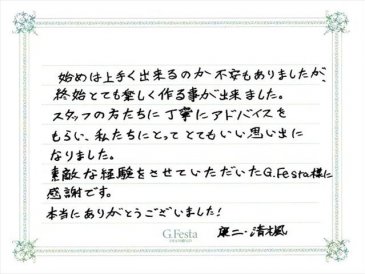 始めは上手く出来るのか不安もありましたが、
終始とても楽しく作る事が出来ました。
スタッフの方たちに丁寧にアドバイスを
もらい、私たちにとってとてもいい思い出に
なりました。
素敵な経験をさせていただいたG.Festa様に
感謝です。
本当にありがとうございました!
G.Festa